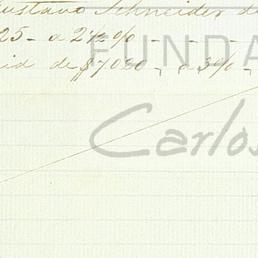 Gustavo Schneider de
25 - a 2½% - - -
id de $7080, a 3% -
FUNDA
Carlos